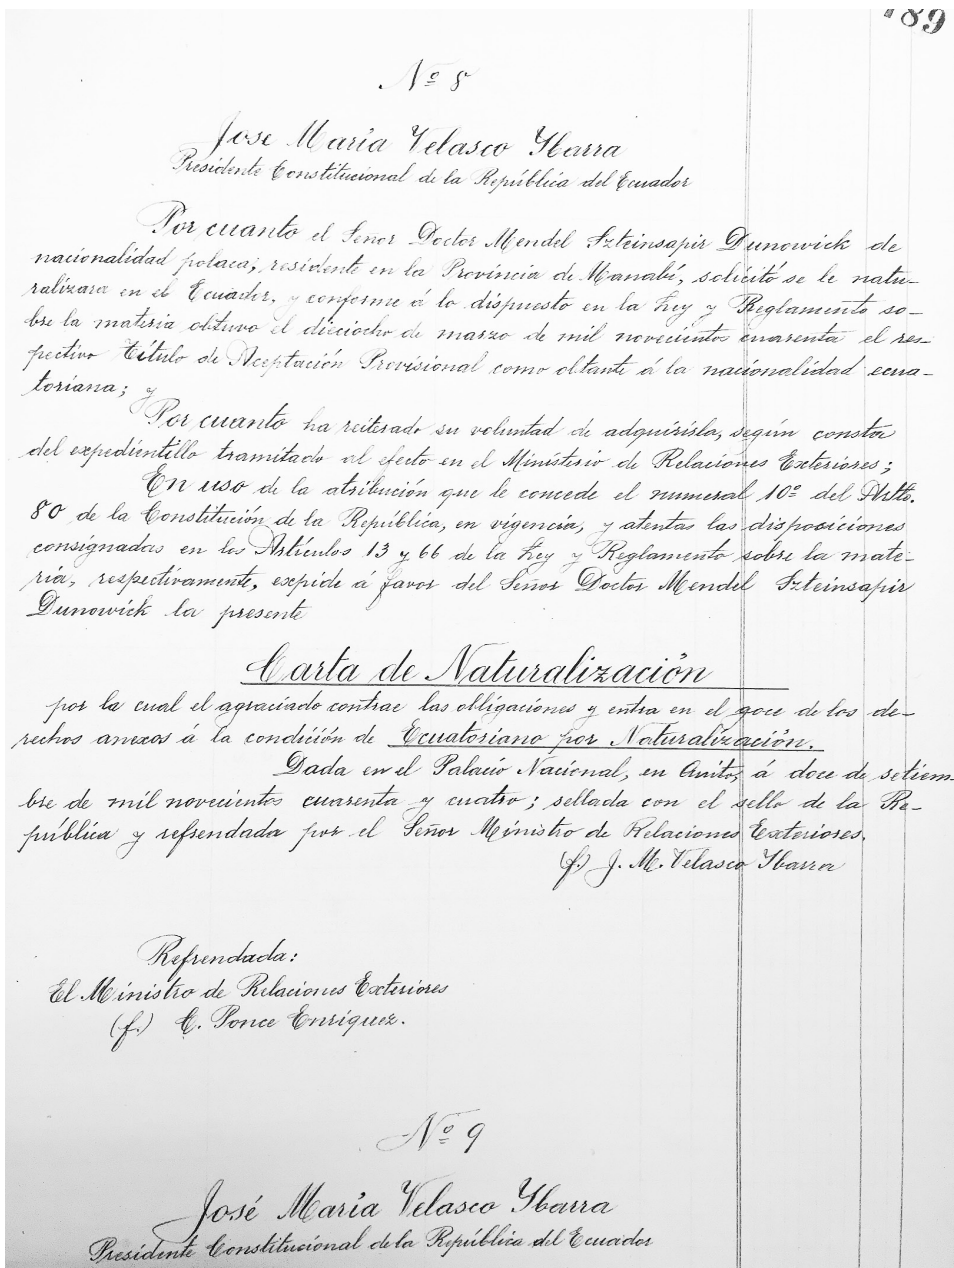 189
Nº 8
Jose María Velasco Ybarra
Presidente Constitucional de la República del Ecuador
Por cuanto el Señor Doctor Mendel Szteinsapir Dunowick de
nacionalidad polaca, residente en la Província de Manabí, solicitó se le natu-
ralizara en el Ecuador, y conforme á lo dispuesto en la Ley y Reglamento so-
bre la materia obtuvo el dieciocho de marzo de mil novecientos cuarenta el res-
pectivo Título de Aceptación Provisional como obtante á la nacionalidad ecua-
toriana; y
Por cuanto ha reiterado su voluntad de adquirirla, según consta
del expedientillo tramitado al efecto en el Ministerio de Relaciones Exteriores;
En uso de la atribución que le concede el numeral 10º del Artº.
80 de la Constitución de la República, en vigencia, y atentas las disposiciones
consignadas en los Artículos 13 y 66 de la Ley y Reglamento sobre la mate-
ria, respectivamente, expide á favor del Señor Doctor Mendel Szteinsapir
Dunowick la presente
Carta de Naturalización
por la cual el agraciado contrae las obligaciones y entra en el goce de los de-
rechos anexos á la condición de Ecuatoriano por Naturalización.
Dada en el Palacio Nacional, en Quito, á doce de setiem-
bre de mil novecientos cuarenta y cuatro; sellada con el sello de la Re-
pública y refrendada por el Señor Ministro de Relaciones Exteriores.
(f.) J. M. Velasco Ybarra
Refrendada:
El Ministro de Relaciones Exteriores
(f.) C. Ponce Enríquez.
Nº 9
José María Velasco Ybarra
Presidente Constitucional de la República del Ecuador